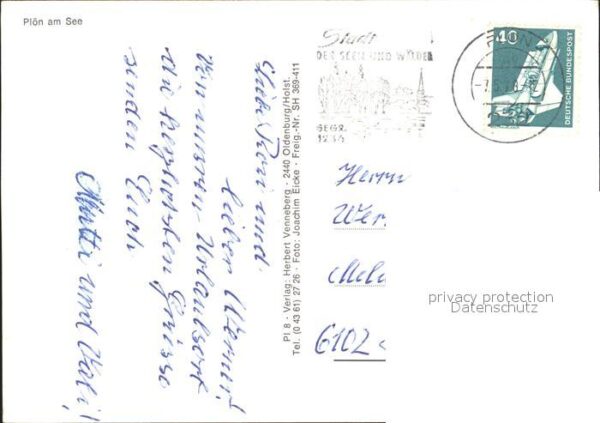 Plön am See
Stadt
DER SEEN UND WÄLDER
GEGR.
1236
PLÖN
-7.6.78
40
DEUTSCHE BUNDESPOST
Liebe Rosi und
lieber Werner!
Von unserm Urlaubsort
die herzlichsten Grüsse
senden Euch
Mutti und Vati!
Pl 8 - Verlag: Herbert Venneberg - 2440 Oldenburg/Holst.
Tel. (0 43 61) 27 26 - Foto: Joachim Eicke - Freig.-Nr. SH 369-411
Herrn
Wer
6102
privacy protection
Datenschutz